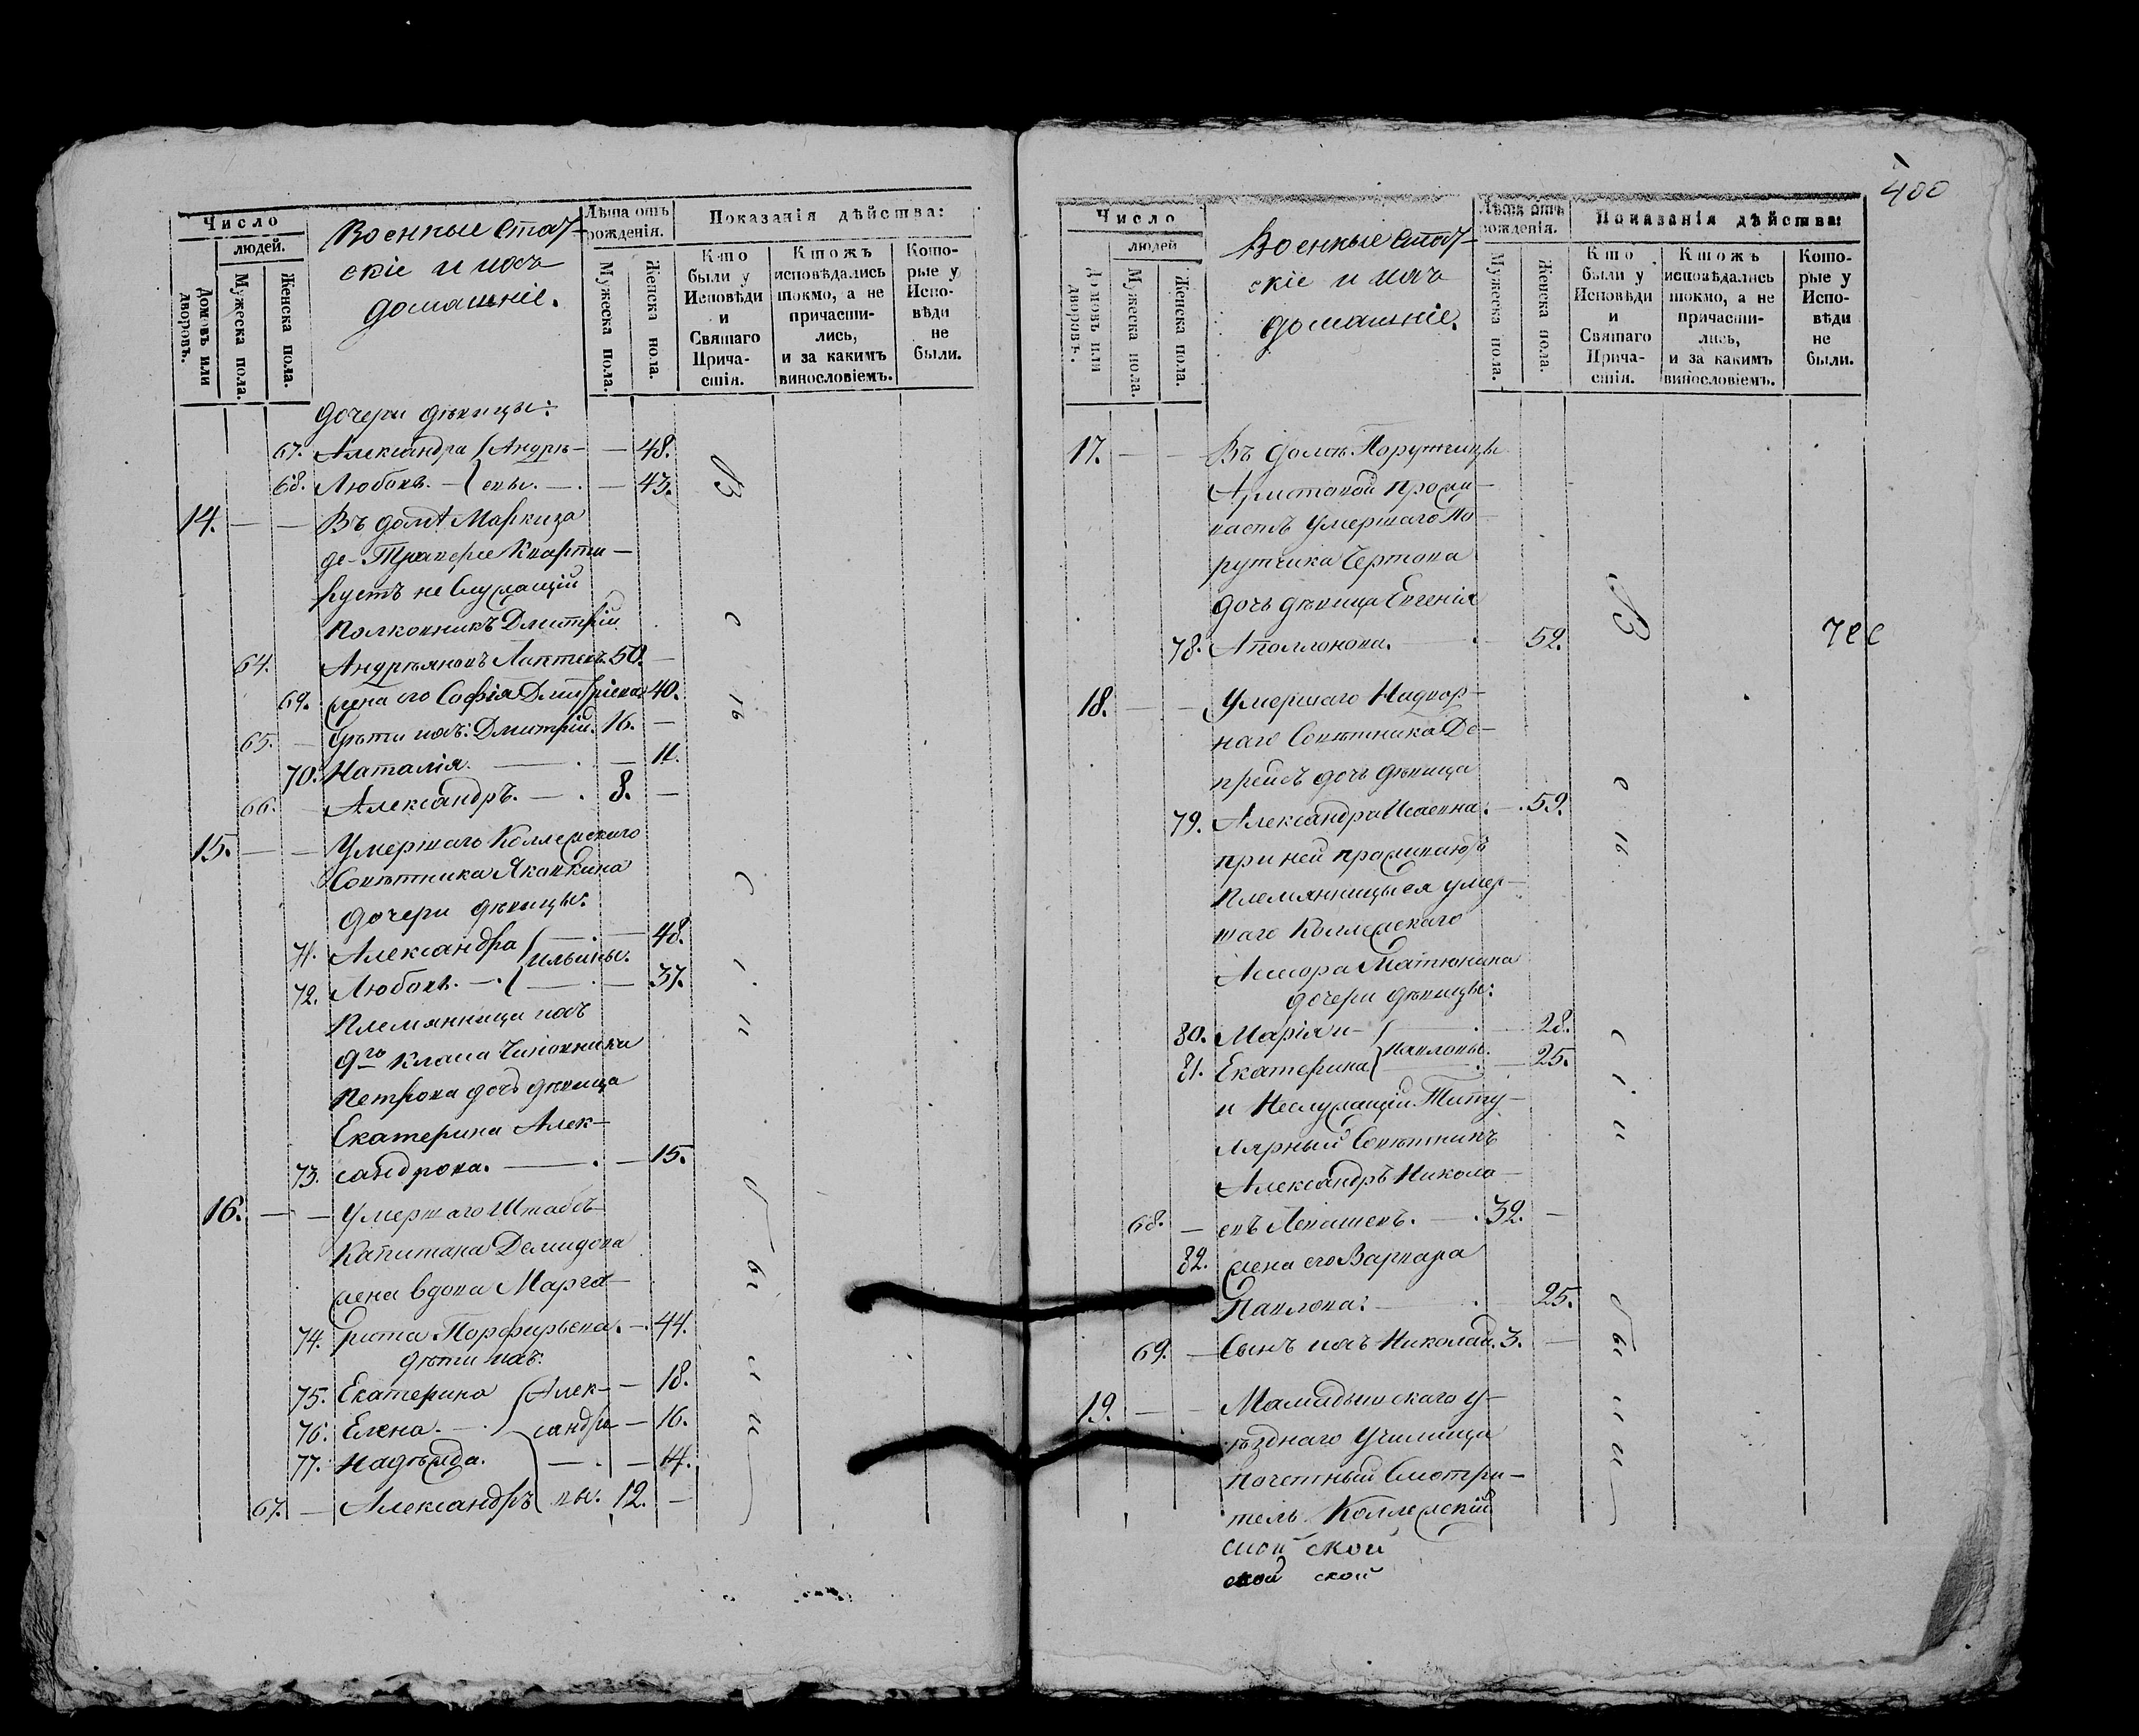 Число
людей.
Домовъ или дворовъ.
Мужеска пола.
Женска пола.
Военные Стат-
скіе и ихъ
домашніе.
Лѣта отъ рожденія.
Мужеска пола.
Женска пола.
Показанія дѣйства:
Кто были у Исповѣди и Святаго Прича-стія.
Ктожъ исповѣдались токмо, а не причасти-лись, и за какимъ винословіемъ.
Кото-рые у Испо-вѣди не были.
дочери дѣвицы:
67. Александра Андрѣ- — 48.
68. Любовь. — евы. — 43.
14. — — Въ домѣ Маркиза
де-Траверсе Кварти-
руетъ не Служащій
Полковникъ Дмитрій
64. Андреяновъ Лаптевъ. 50. —
69. жена его Софія Дмитріева 40.
65. — Дѣти ихъ: Дмитрій. 16. —
70. Наталія. — 11.
66. — Александръ. — 8. —
15. — — Умершаго Коллежскаго
Совѣтника Яковкина
дочери дѣвицы:
71. Александра — 48.
Ильины.
72. Любовь. — 37.
Племянница ихъ
9го класса Чиновника
Петрова дочь дѣвица
Екатерина Алек-
73. сандрова. — 15.
16. — — Умершаго Штабсъ-
Капитана Демидова
жена вдова Марга-
74. рита Порфирьева. — 44.
дѣти ихъ:
75. Екатерина Алек- — 18.
76. Елена. — сандро — 16.
77. Надѣжда. — 14.
67. — Александръ вы. 12. —
400
Число
людей
Домовъ или дворовъ.
Мужеска пола.
Женска пола.
Военные Стат-
скіе и ихъ
домашніе.
Лѣта отъ рожденія.
Мужеска пола.
Женска пола.
Показанія дѣйства:
Кто были у Исповѣди и Святаго Прича-стія.
Ктожъ исповѣдались токмо, а не причасти-лись, и за какимъ винословіемъ.
Кото-рые у Испо-вѣди не были.
17. — — Въ домѣ Поручицы
Аристовой прожи-
ваетъ умершаго По-
ручика Чертова
дочь дѣвица Евгенія
78. Аполлонова. — 52.
18. — — Умершаго Надвор-
наго Совѣтника Де-
прейсъ дочь дѣвица
79. Александра Исаевна. — 59.
при ней проживаютъ
Племянницы ея умер-
шаго Коллежскаго
Ассесора Матюнина
дочери дѣвицы:
80. Марія и — 28.
Павловы.
81. Екатерина — 25.
и Неслужащій Титу-
лярный Совѣтникъ
Александръ Никола-
68. — евъ Левашевъ. — 32. —
82. жена его Варвара
Павлова: — 25.
69. — Сынъ ихъ Николай. 3. —
19. — — Мамадышскаго у-
ѣзднаго Училища
Почетный Смотри-
тель Коллежскій
ской ской
ской ской